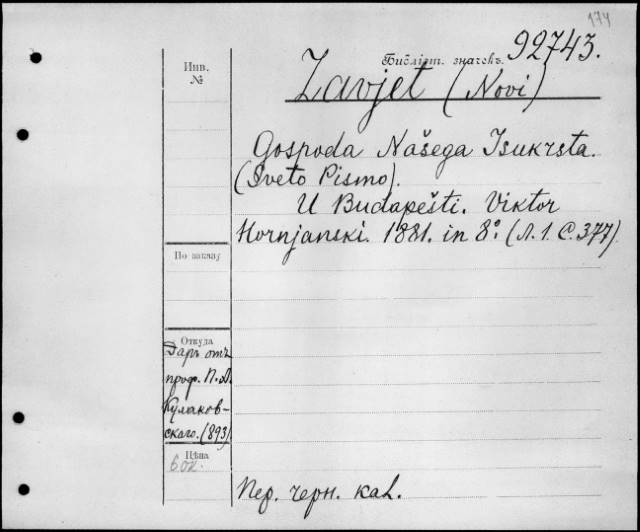 174
Библіот. значекъ. 92743.
Инв.
№
Zavjet (Novi)
Gospoda Našega Isukrsta.
(Sveto Pismo).
U Budapešti. Viktor
Hornjanski. 1881. in 8º. (Л. 1. С. 377)
По заказу
Откуда
Даръ отъ
проф. П. А.
Кулаков-
скаго. (893)
Цѣна
60к.
Пер. черн. кал.